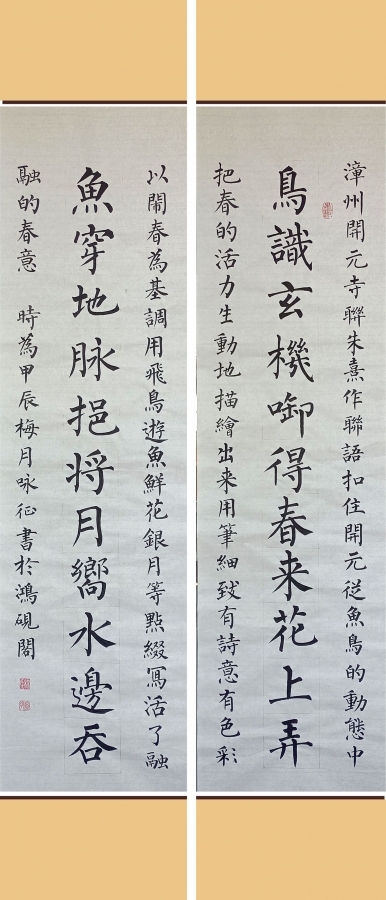 漳州開元寺聯朱熹作聯語扣住開元従魚鳥的動態中
鳥識玄機啣得春来花上弄
把春的活力生動地描繪出来用筆細致有詩意有色彩
以鬧春為基調用飛鳥遊魚鮮花銀月等點綴寫活了融
魚穿地脉挹将月嚮水邊吞
融的春意 時為甲辰梅月咏征書於鴻硯閣